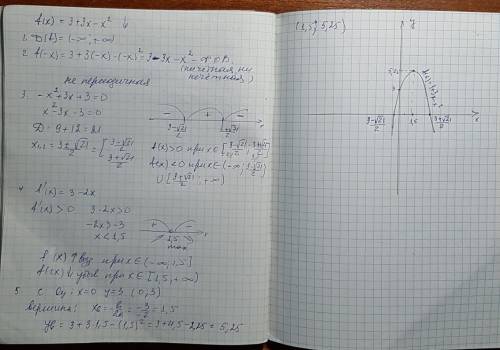 f(x) = 3+3x-x² ↓
1. D(f) = (-∞; +∞)
2. f(-x) = 3+3(-x)-(-x)² = 3-3x-x² - ф.О.В.
(ни чётная, ни нечётная)
не периодичная
3. -x²+3x+3=0
x²-3x-3=0
D = 9+12 = 21
x₁,₂ = 3±√21/2 = [3-√21/2 3+√21/2
- + - x
3-√21/2 3+√21/2
f(x)>0 при x∈
f(x)<0 при x∈(-∞; 3-√21/2)
∪[3+√21/2; +∞)
4 f'(x) = 3-2x
f'(x)>0 3-2x>0
-2x>-3
x<1,5
+ - x
1,5
max
f(x)↑ возр при x∈(-∞; 1,5]
f(x)↓ убыв при x∈[1,5; +∞)
5 с Oy: x=0 y=3 (0; 3)
вершина: x₀ = -b/2a = -3/-2 = 1,5
y₀ = 3+3·1,5-(1,5)² = 3+4,5-2,25 = 5,25
(1,5; 5,25)
y
5,25
f(x)=3+3x-x²
3
3-√21/2
1,5
3+√21/2
x